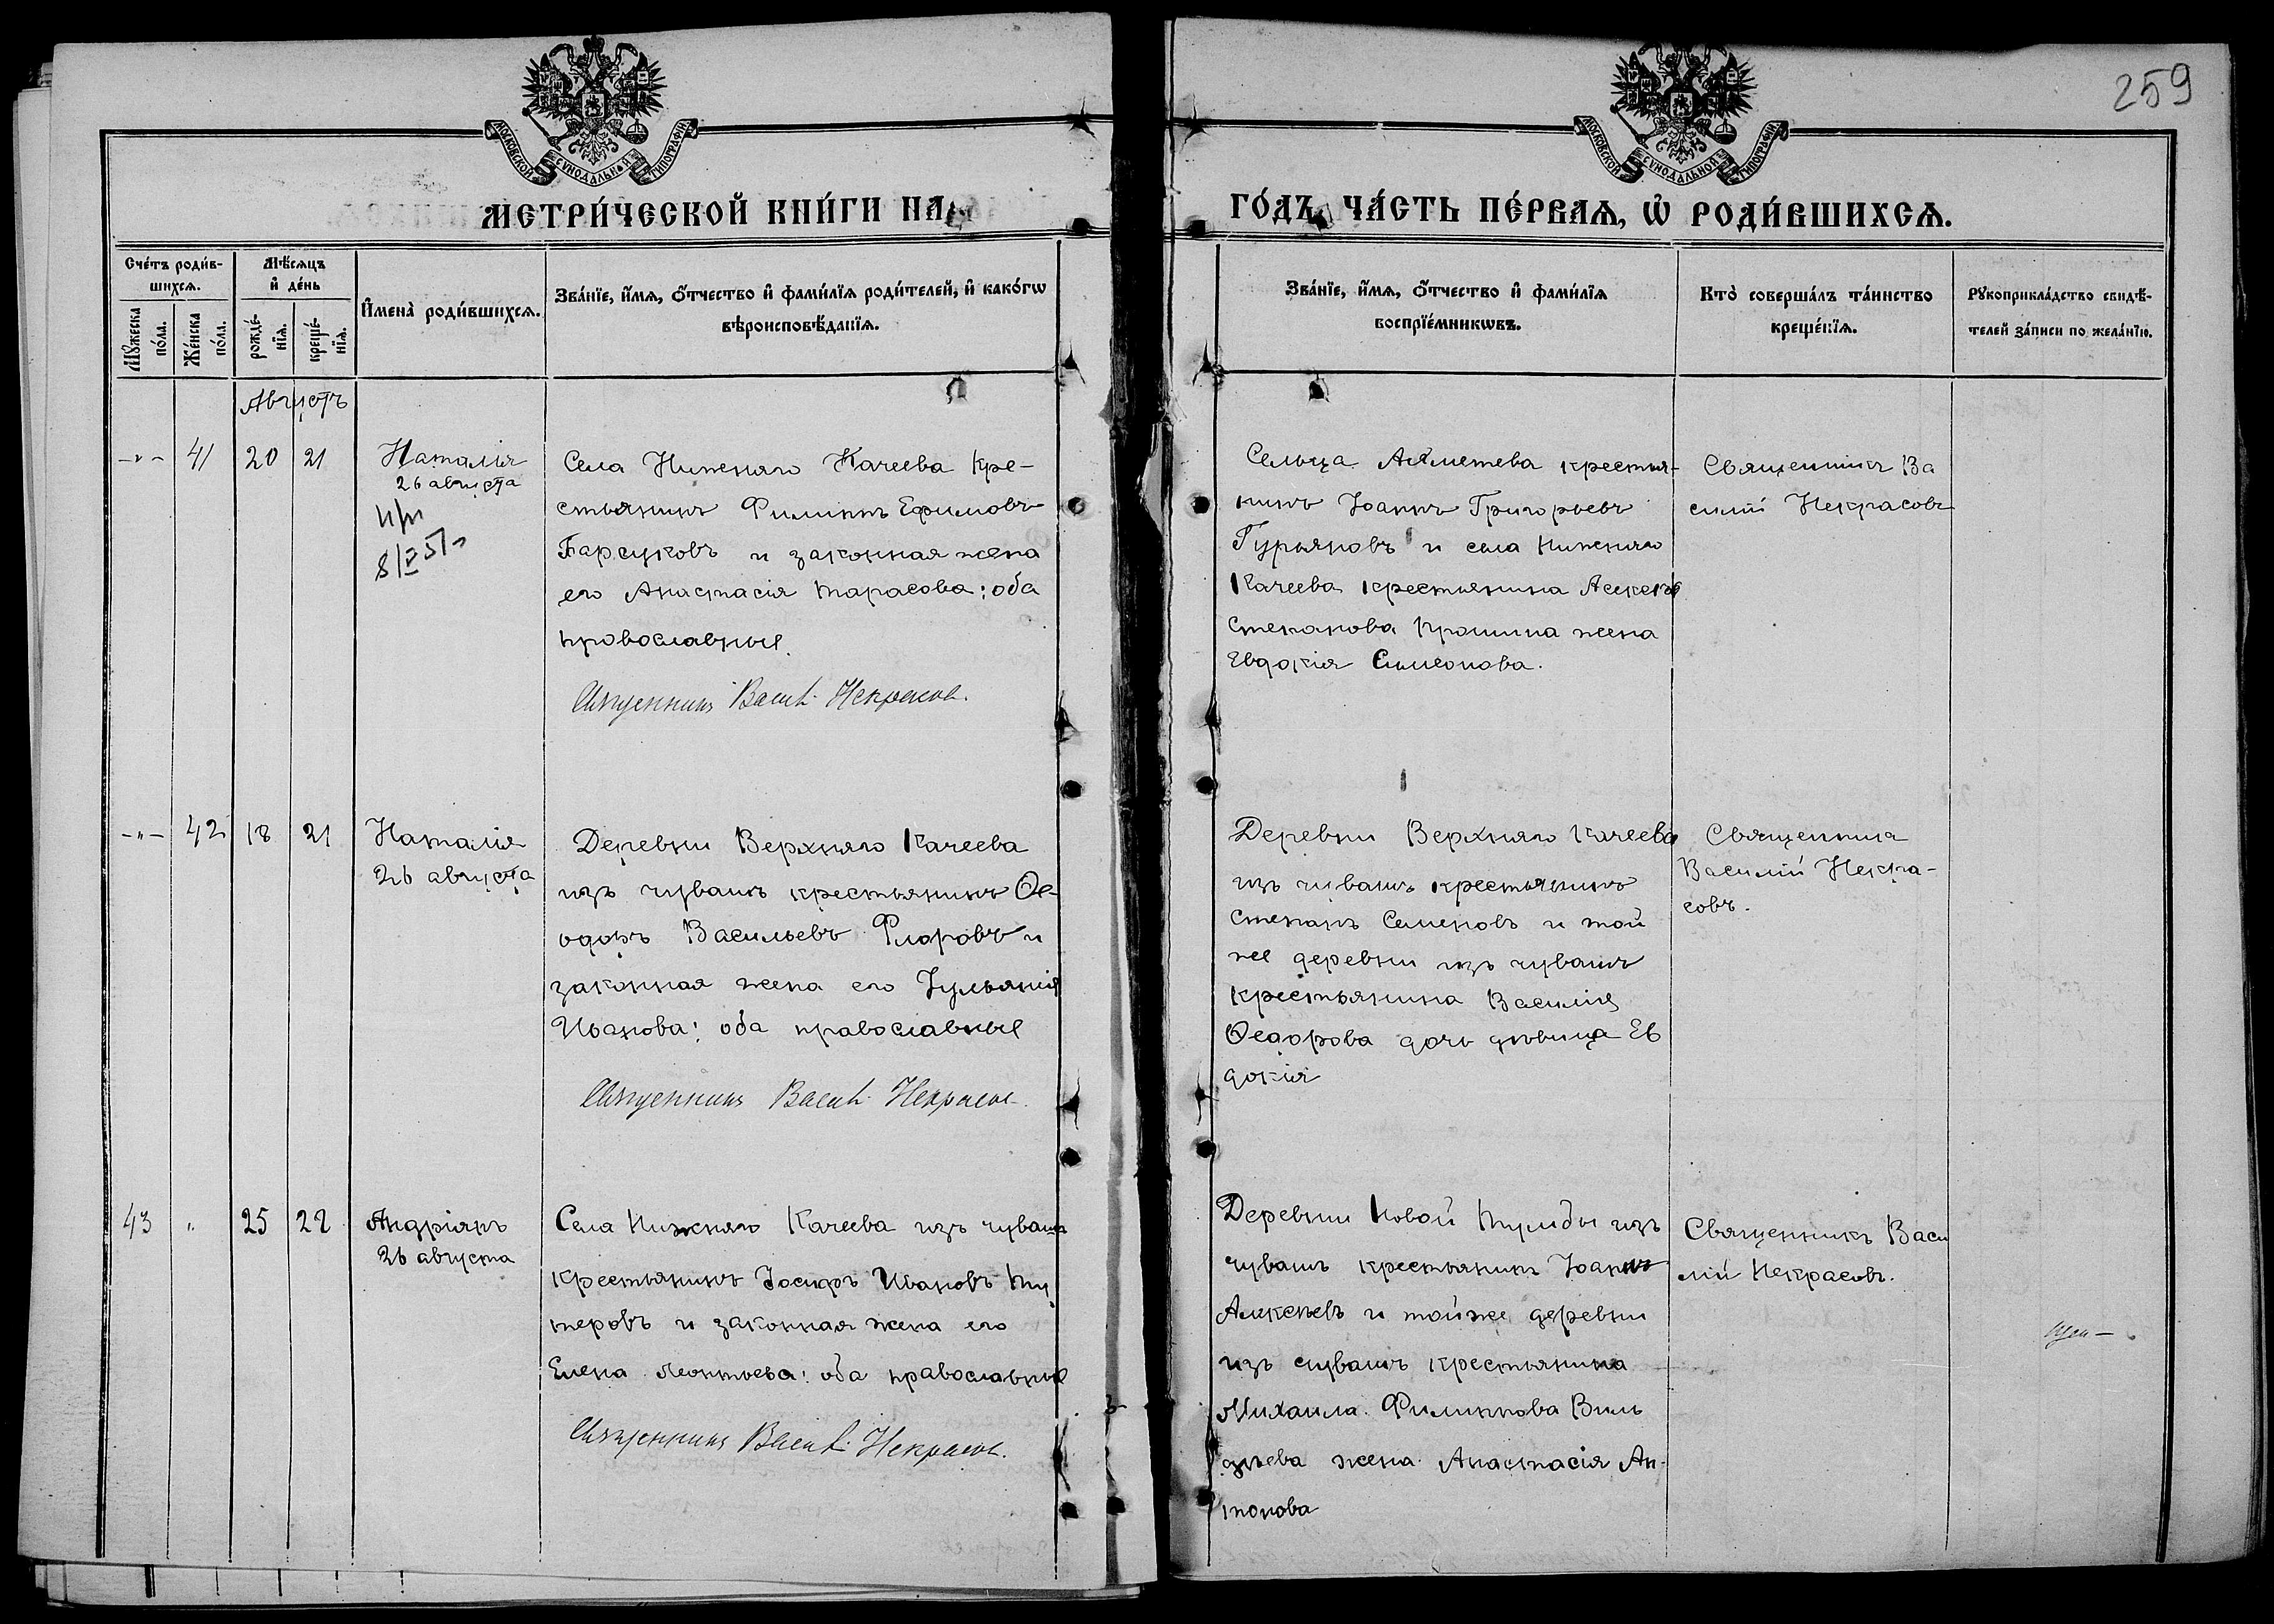 259
МОСКОВСКОЙ СѴНОДАЛЬНОЙ ТИПОГРАФІИ
МОСКОВСКОЙ СѴНОДАЛЬНОЙ ТИПОГРАФІИ
МЕТРИ́ЧЕСКОЙ КНИ́ГИ НА
ГО́ДЪ, ЧА́СТЬ ПЕ́РВАѦ, Ѽ РОДИ́ВШИХСѦ.
Сче́тъ роди́в-
шихсѧ.
Мѣ́сѧцъ
и҆ де́нь
Мꙋ́жеска
по́ла.
Же́нска
по́ла.
рожде́-
нїѧ.
креще́-
нїѧ.
И҆мена̀ роди́вшихсѧ.
Зва́нїе, и҆́мѧ, ѻ҆́тчество и҆ фами́лїѧ роди́телей, и҆ како́гѡ
вѣроисповѣ́данїѧ.
Зва́нїе, и҆́мѧ, ѻ҆́тчество и҆ фами́лїѧ
воспрїе́мникѡвъ.
Кто̀ соверша́лъ та́инство
креще́нїѧ.
Рꙋкоприкла́дство свидѣ́-
телей за́писи по жела́нїю.
Августъ
-"- 41 20 21
Наталія
26 августа
Села Нижняго Качеева кре-
стьянинъ Филиппъ Ефимовъ
Барсуковъ и законная жена
его Анастасія Тарасова: оба
православные.
Священникъ Васил. Некрасов.
Сельца Ахметева крестья-
нинъ Іоаннъ Григорьевъ
Гурьяновъ и села Нижняго
Качеева крестьянина Алексѣя
Степанова Крошина жена
Евдокія Симеонова.
Священникъ Ва
силій Некрасовъ
-"- 42 18 21
Наталія
26 августа
Деревни Верхняго Качеева
изъ чувашъ крестьянинъ Ѳе-
одоръ Васильевъ Флоровъ и
законная жена его Іульянія
Иванова: оба православные
Священникъ Васил. Некрасов.
Деревни Верхняго Качеева
изъ чувашъ крестьянинъ
Степанъ Семеновъ и той
же деревни изъ чувашъ
крестьянина Василія
Ѳедорова дочь дѣвица Ев
докія
Священникъ
Василій Некра-
совъ.
43 " 25 22
Андріанъ
26 августа
Села Нижняго Качеева изъ чувашъ
крестьянинъ Іосифъ Ивановъ
и законная жена его
Елена Леонтьева: оба православные
Священникъ Васил. Некрасов.
Деревни Новой изъ
чувашъ крестьянинъ Іоаннъ
Алексѣевъ и той же деревни
изъ чувашъ крестьянина
Михаила Филиппова Виль
дяева жена Анастасія Ан-
тонова
Священникъ Васи
лій Некрасовъ.